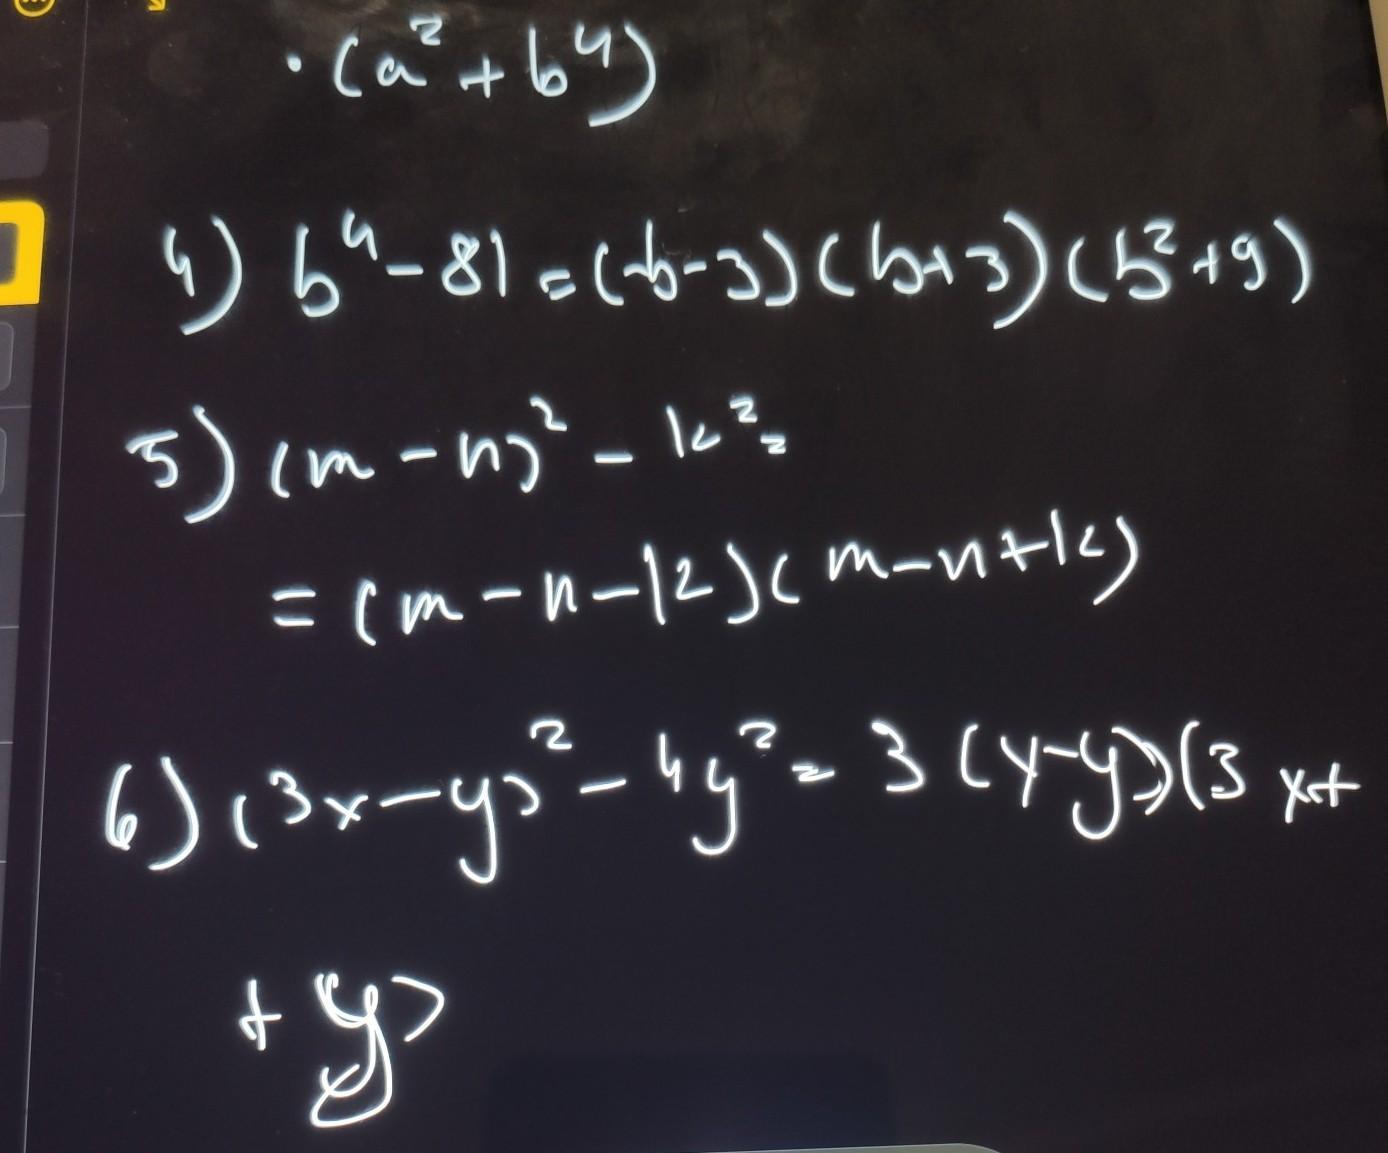 · (a² + b⁴)
4) b⁴ - 81 = (b - 3)(b + 3)(b² + 9)
5) (m - n)² - k² =
= (m - n - k)(m - n + k)
6) (3x - y)² - 4y² = 3 (y - y)(3 x +
+ y)